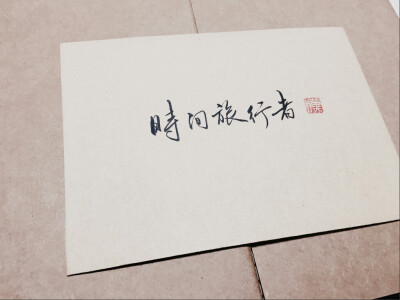 時间旅行者